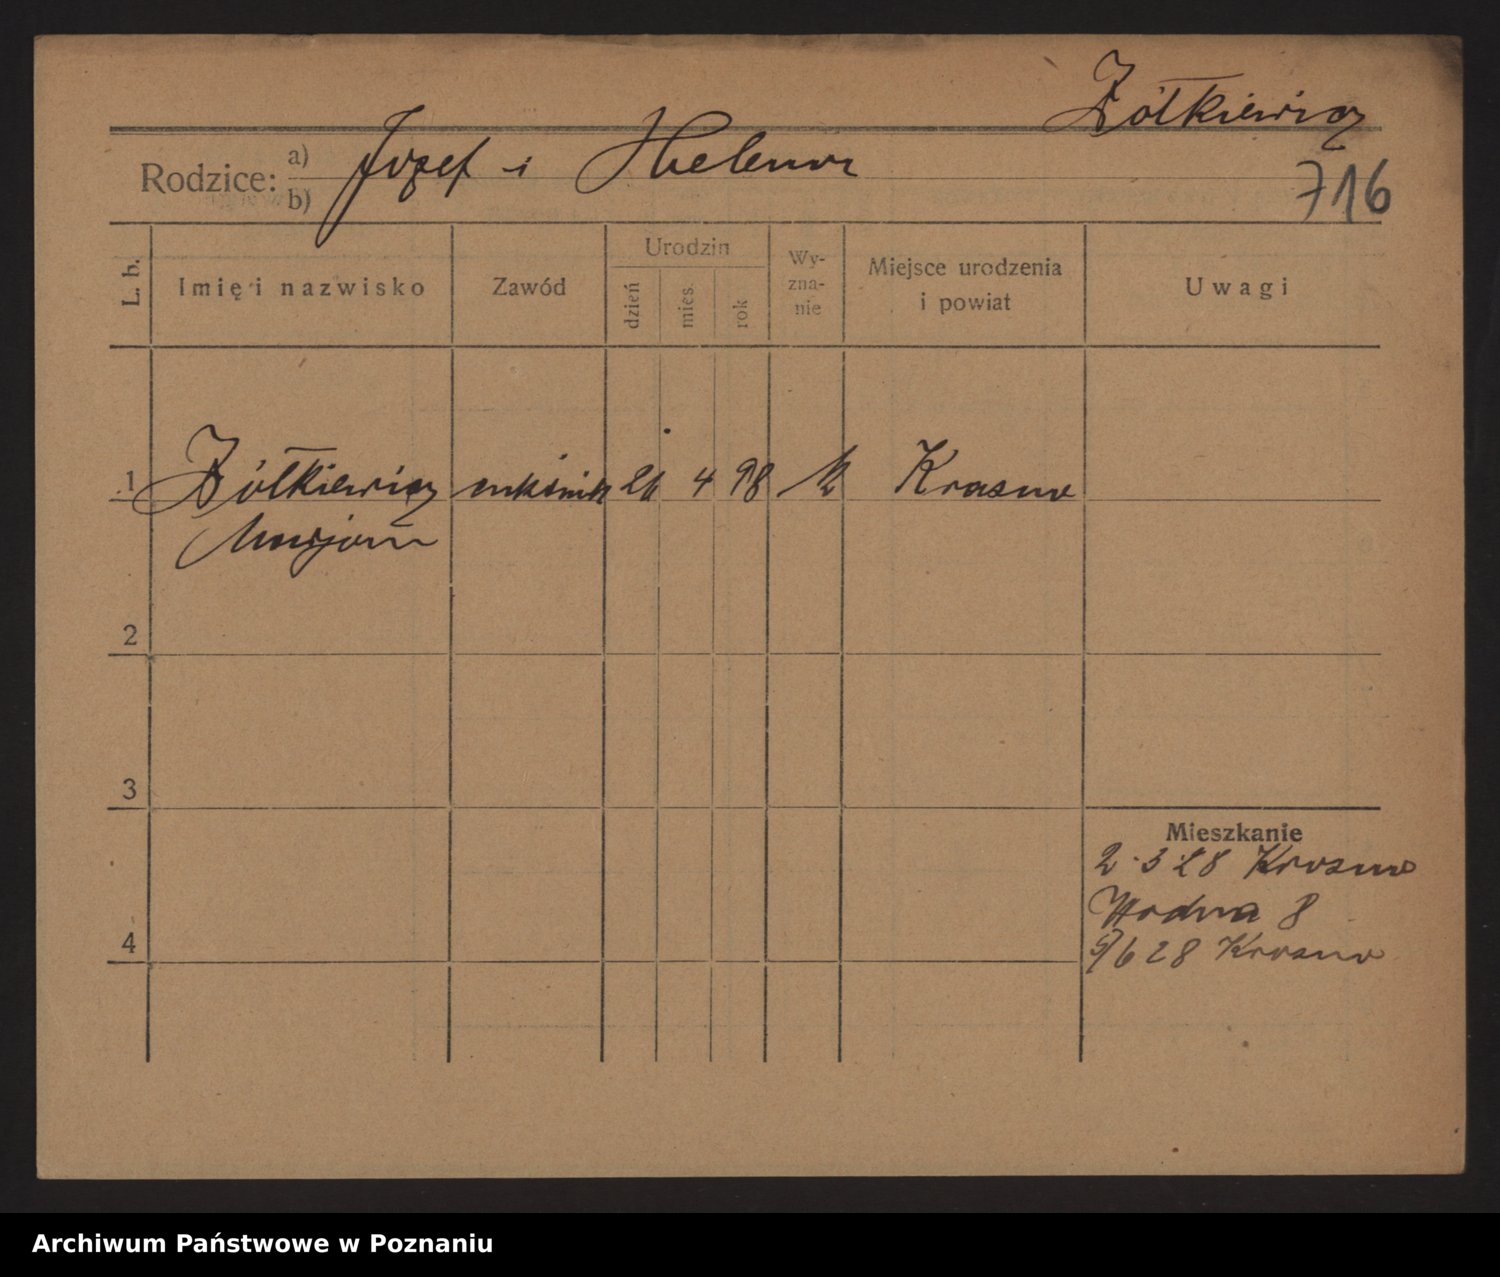 Żółkiewicz
Rodzice: a) b) Józef i Helena
716
L. b. Imię i nazwisko Zawód Urodzin dzień mies. rok Wy-zna-nie Miejsce urodzenia i powiat Uwagi
1 Żółkiewicz 21 4 98 k Krosno
Marjan
2
3
Mieszkanie
2.3 28 Krosno
Wodna 8
4
9/6 28 Krosno
Archiwum Państwowe w Poznaniu